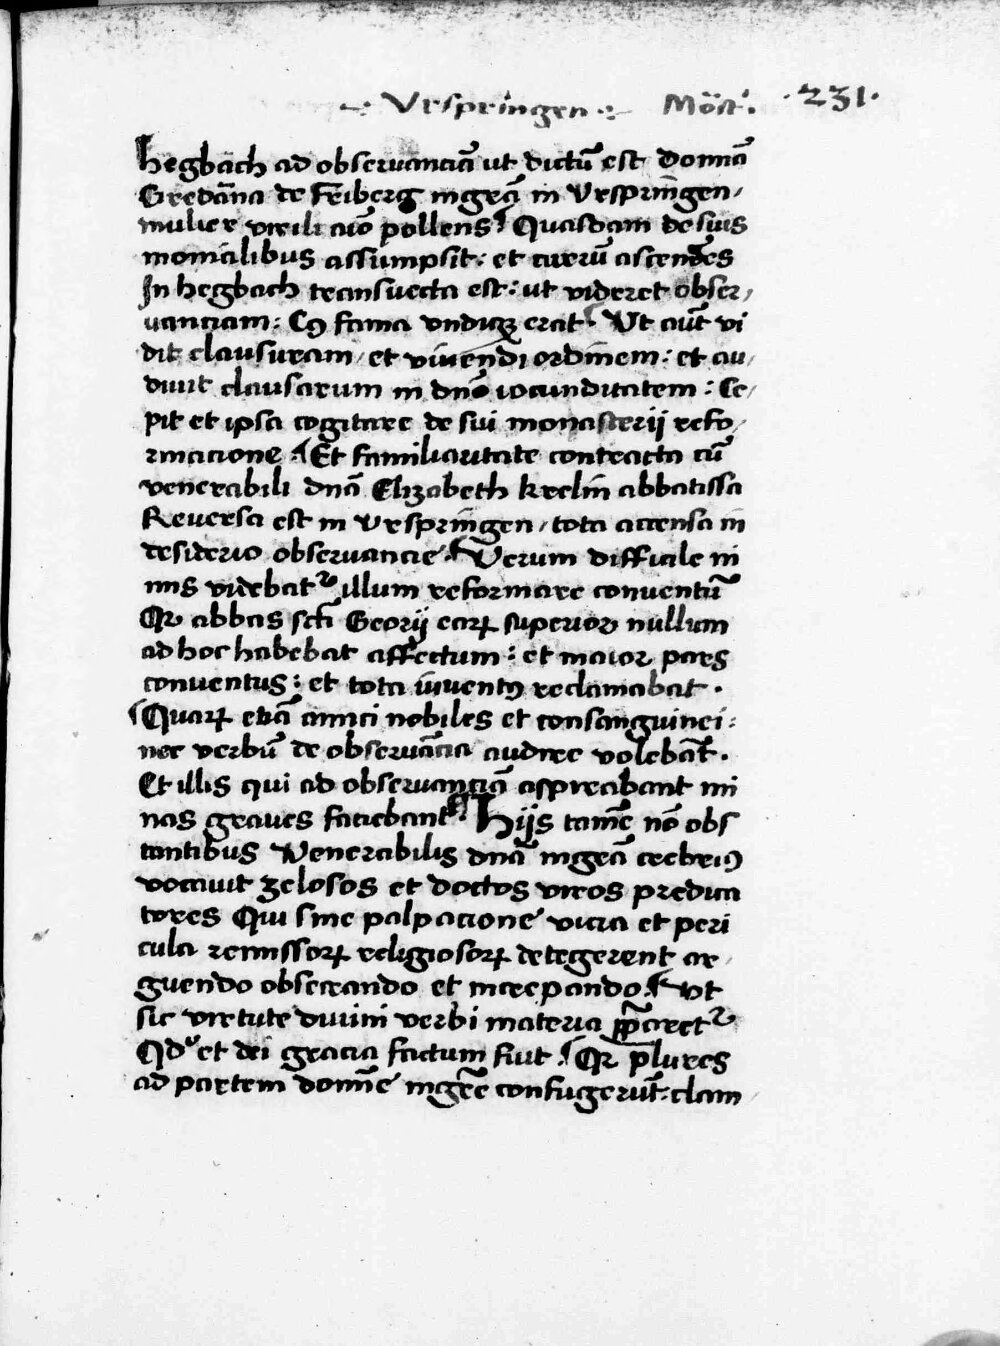 Vrspringen Mōst. .231.
hegbach ad obseruanciā ut dictū est Donnā
Gredāna de Friberg mgrā in Vrspringen,
mulier virili aīo pollens. Quasdam de suis
monialibus assumpsit: et currū ascendēs
In hegbach transuecta est: ut videret obser,
uanciam: Cꝯ fama vndiqꝫ erat. Vt aūt vi
dit clausuram, et viuendi ordinem: et au,
diuit clausarum in dnō iocunditatem: Ce,
pit et ipsa cogitare de sui monasterij refo,
rmacione. Et familiaritate contracta cū
venerabili dnā Elizabeth krelin abbatissa
Reuersa est in vrspringen, tota accensa in
desiderio obseruancie. Verum difficile ni
mis videbatᷣ illum reformare conuentū
Qꝛ abbas sctī Georij eaꝝ superior nullum
ad hoc habebat affectum: et maior pars
conuentus: et tota iuuentꝯ reclamabat.
Quaꝝ etiā amici nobiles et consanguinei:
nec verbū de obseruācia audire volebāt.
Et illis qui ad obseruanciā aspirabant mi
nas graues faciebant. Hijs tamē nō obs
tantibus Venerabilis dnā mgrā crebriꝯ
vocauit zelosos et doctos viros predica
tores Qui sine palpacione vicia et peri
cula remissoꝝ religiosoꝝ detegerent ar,
guendo obsecrando et increpando. Vt
sic virtute diuini verbi materia ꝑpararetᷣ
Qdͦ et dei gracia factum fuit. Qꝛ plures
ad partem donne mgrē confugerūt: clam,